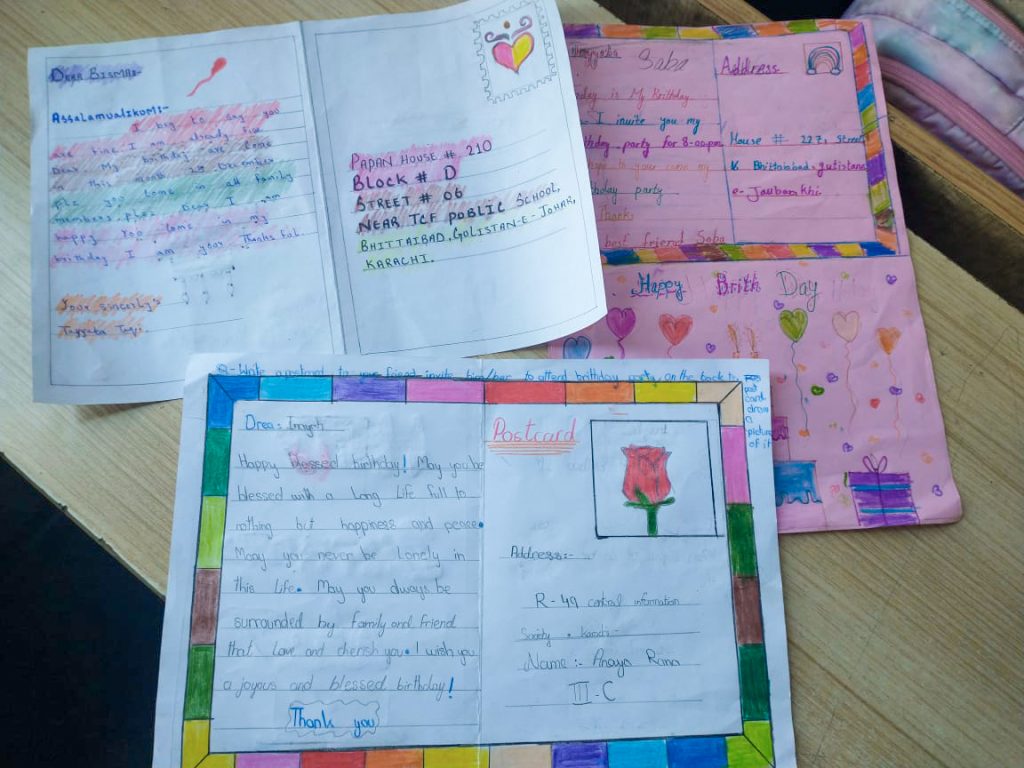 Dear Bisma:-
Assalamualikom:-
I beg to say you
are fine I am already fine
Dear My birthday are come
in this month 29 December
plz you come in all family
members. plz. Dear I am
happy you come in my
birthday I am your Thanks ful
Your sincerly's
Tayyaba Taqi.
PAPAN HOUSE #. 210
BLOCK # D
STREET # 06
NEAR TCF PUBLIC SCHOOL,
BHITTAIBAD, GULISTAN-E-JOHAR,
KARACHI.
Saba
day is My Birthday.
I invite you my
thday party for 8:00pm
to your come my
thday party
Thanks
best friend Saba
Address
House # 227, Street
Bhittaiabad gulistane
e-Jauharkhi
Happy Brith Day
Q- Write a postcard to your friend invite him/her to attend birthday party on the back to
post
card
draw
a
picture
of it
Drea: Imyah
Happy blessed birthday! May you be
blessed with a Long Life full to
nothing but happiness and peace.
May you never be Lonely in
this life. May you always be
surrounded by family and friend
that Love and cherish you. I wish you
a joyous and blessed birthday!
Thank you
Postcard
Address:-
R-49 central information
Society . Karachi-
Name:- Anaya Rana
III-C